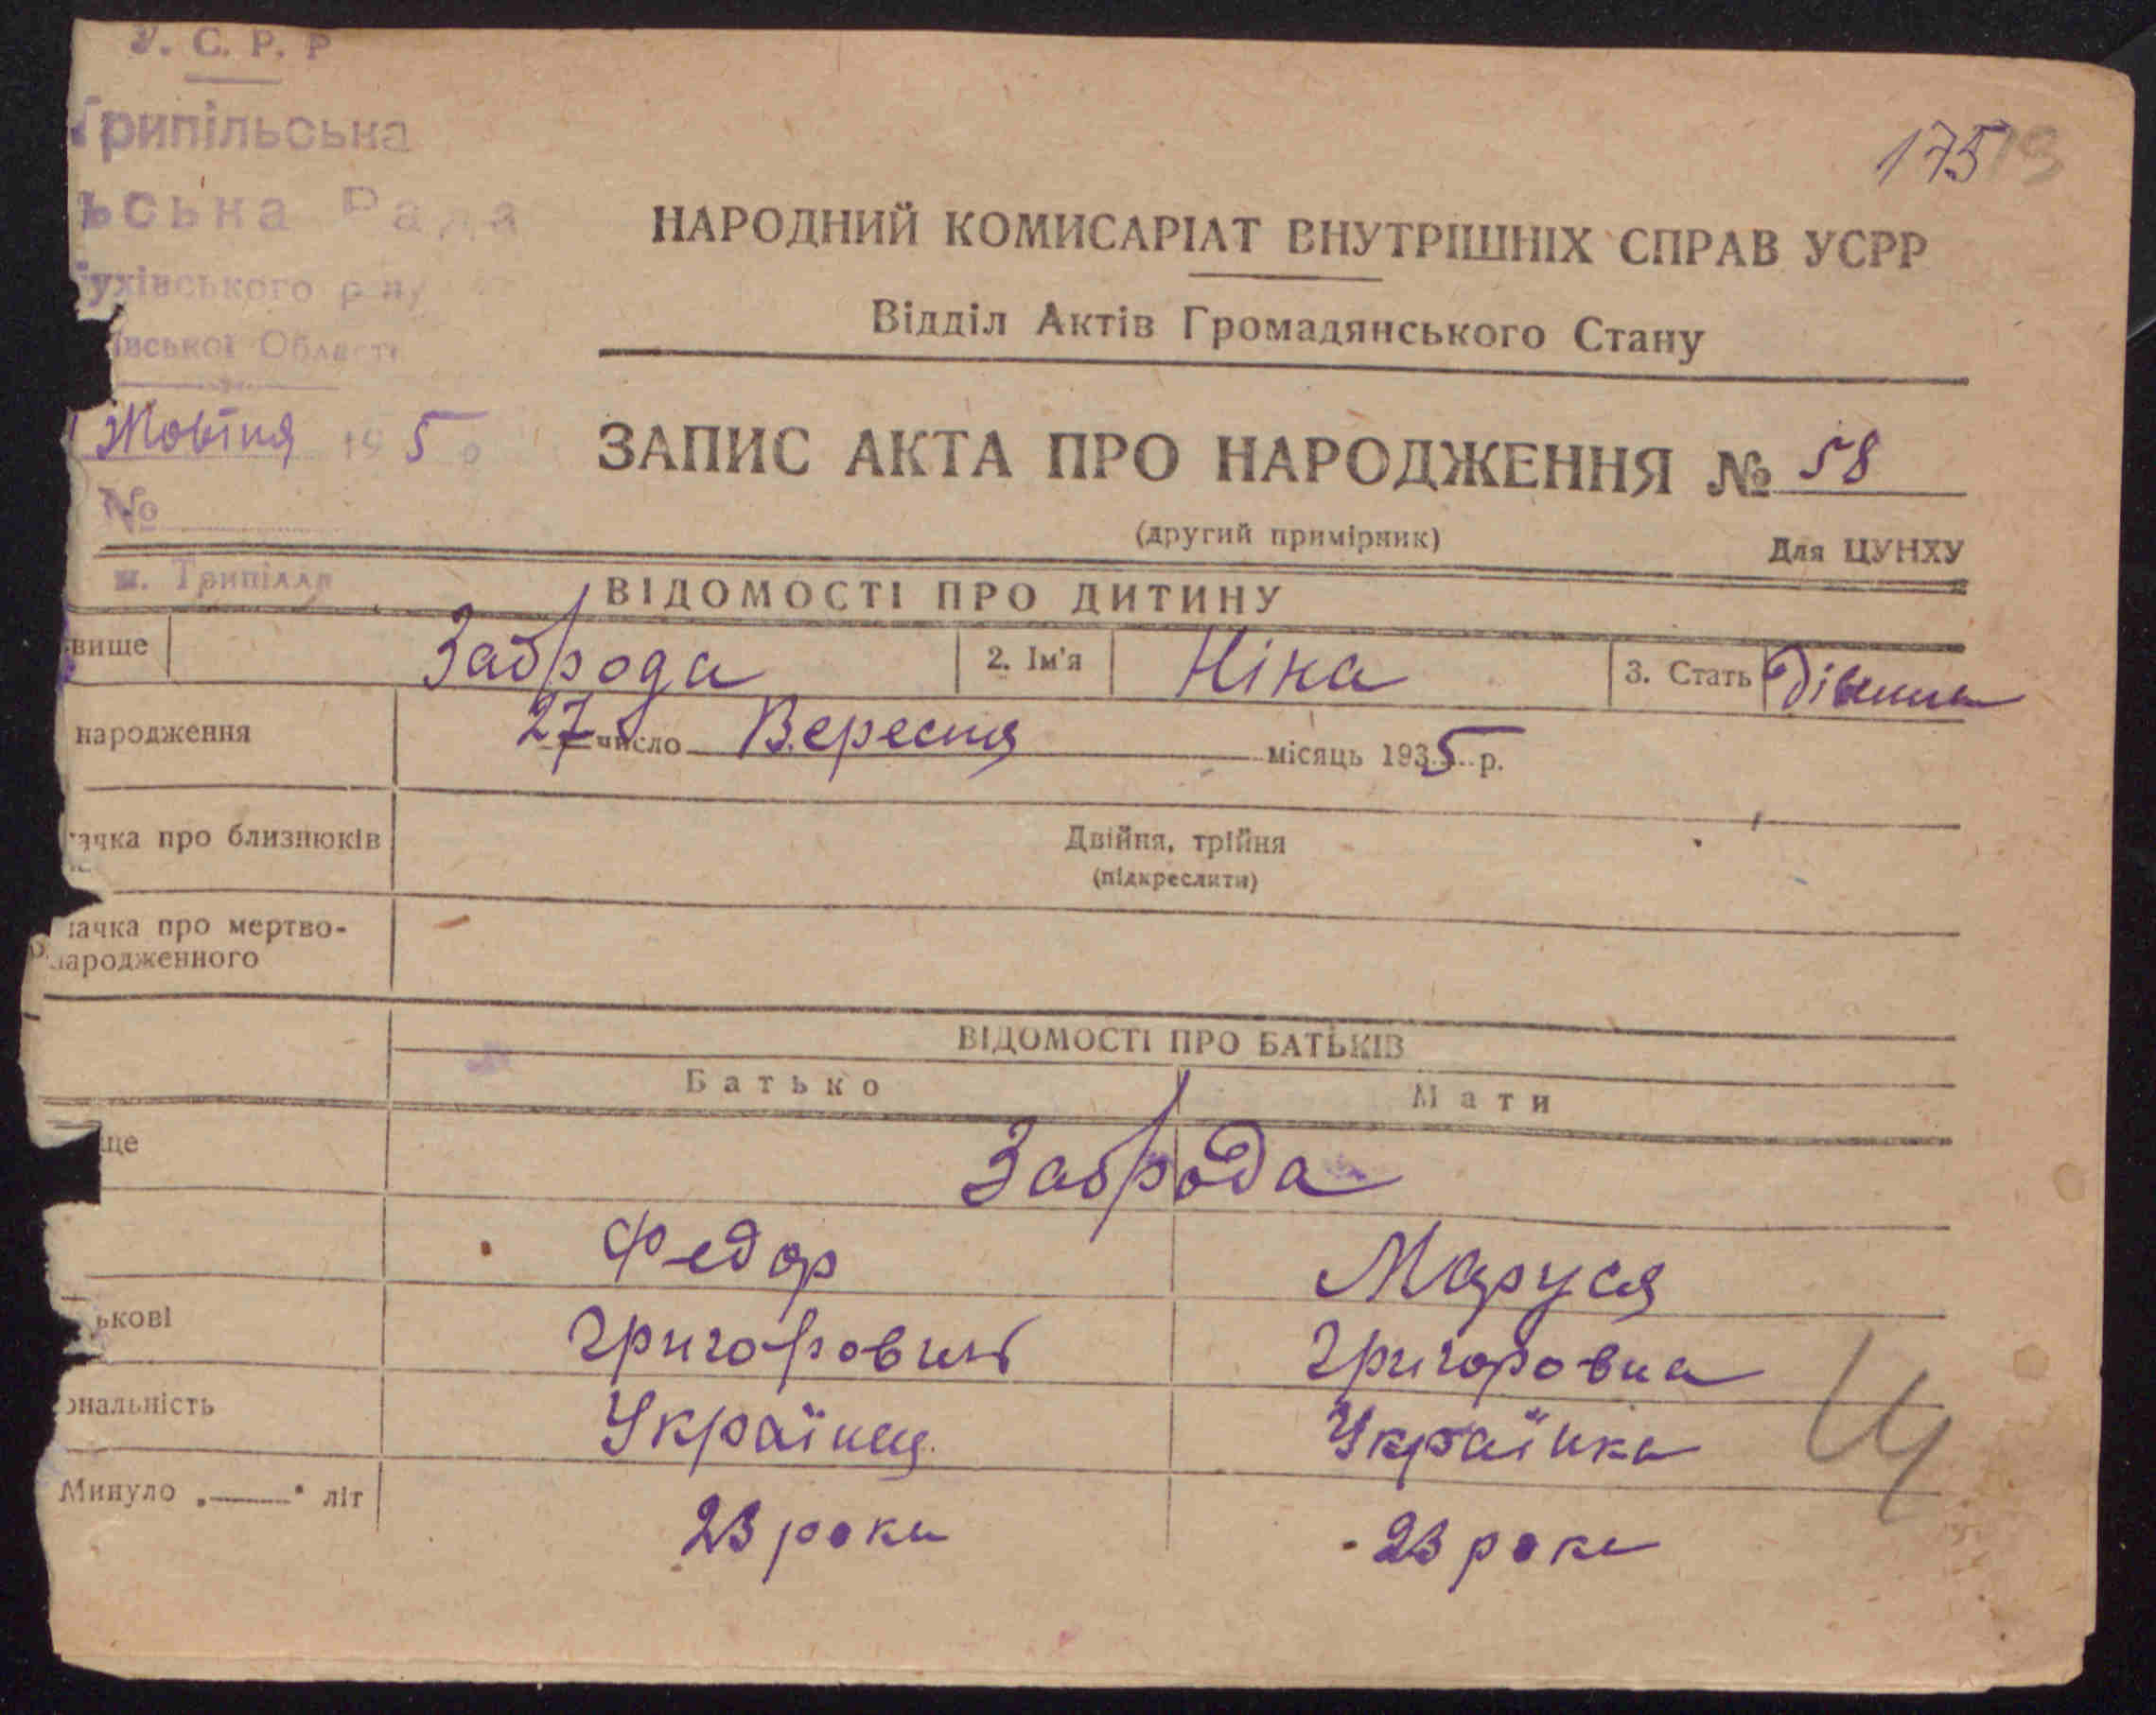 У. С. Р. Р
Трипільська
ьська Рада
ухівського р-ну
ївської Області
Жовтня 195
№
м. Трипілля
175
НАРОДНИЙ КОМИСАРІАТ ВНУТРІШНІХ СПРАВ УСРР
Відділ Актів Громадянського Стану
ЗАПИС АКТА ПРО НАРОДЖЕННЯ № 58
(другий примірник)
Для ЦУНХУ
ВІДОМОСТІ ПРО ДИТИНУ
вище Заброда 2. Ім'я Ніка 3. Стать
народження 27 число Вересня місяць 1935 р.
ачка про близнюків Двійня, трійня
(підкреслити)
ачка про мертво-
народженного
ВІДОМОСТІ ПРО БАТЬКІВ
Батько Мати
ще Заброда
Федор Маруся
ькові Григорович Григоровна
ональність Українец Українка
Минуло „—“ літ 23 роки 23 роки